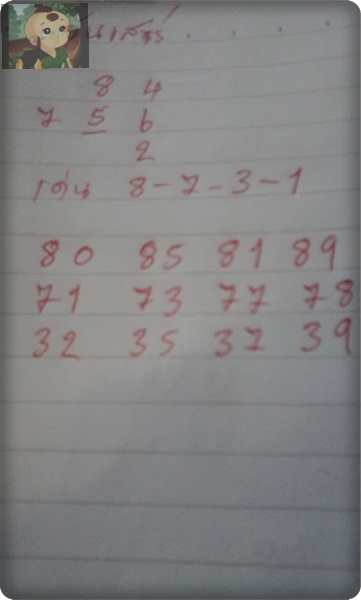 วันเสาร์ . . . .
8 4
7 5 6
2
เด่น 8-7-3-1
80 85 81 89
71 73 77 78
32 35 37 39